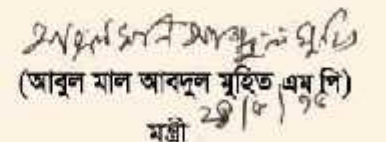 আবুল মাল আবদুল মুহিত
(আবুল মাল আবদুল মুহিত এম পি)
মন্ত্রী